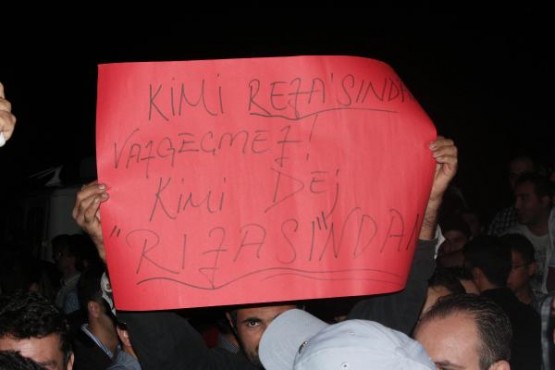 KİMİ REZA'SINDAN
VAZGEÇMEZ!
KİMİ DEJ
"RIZASI"NDAN